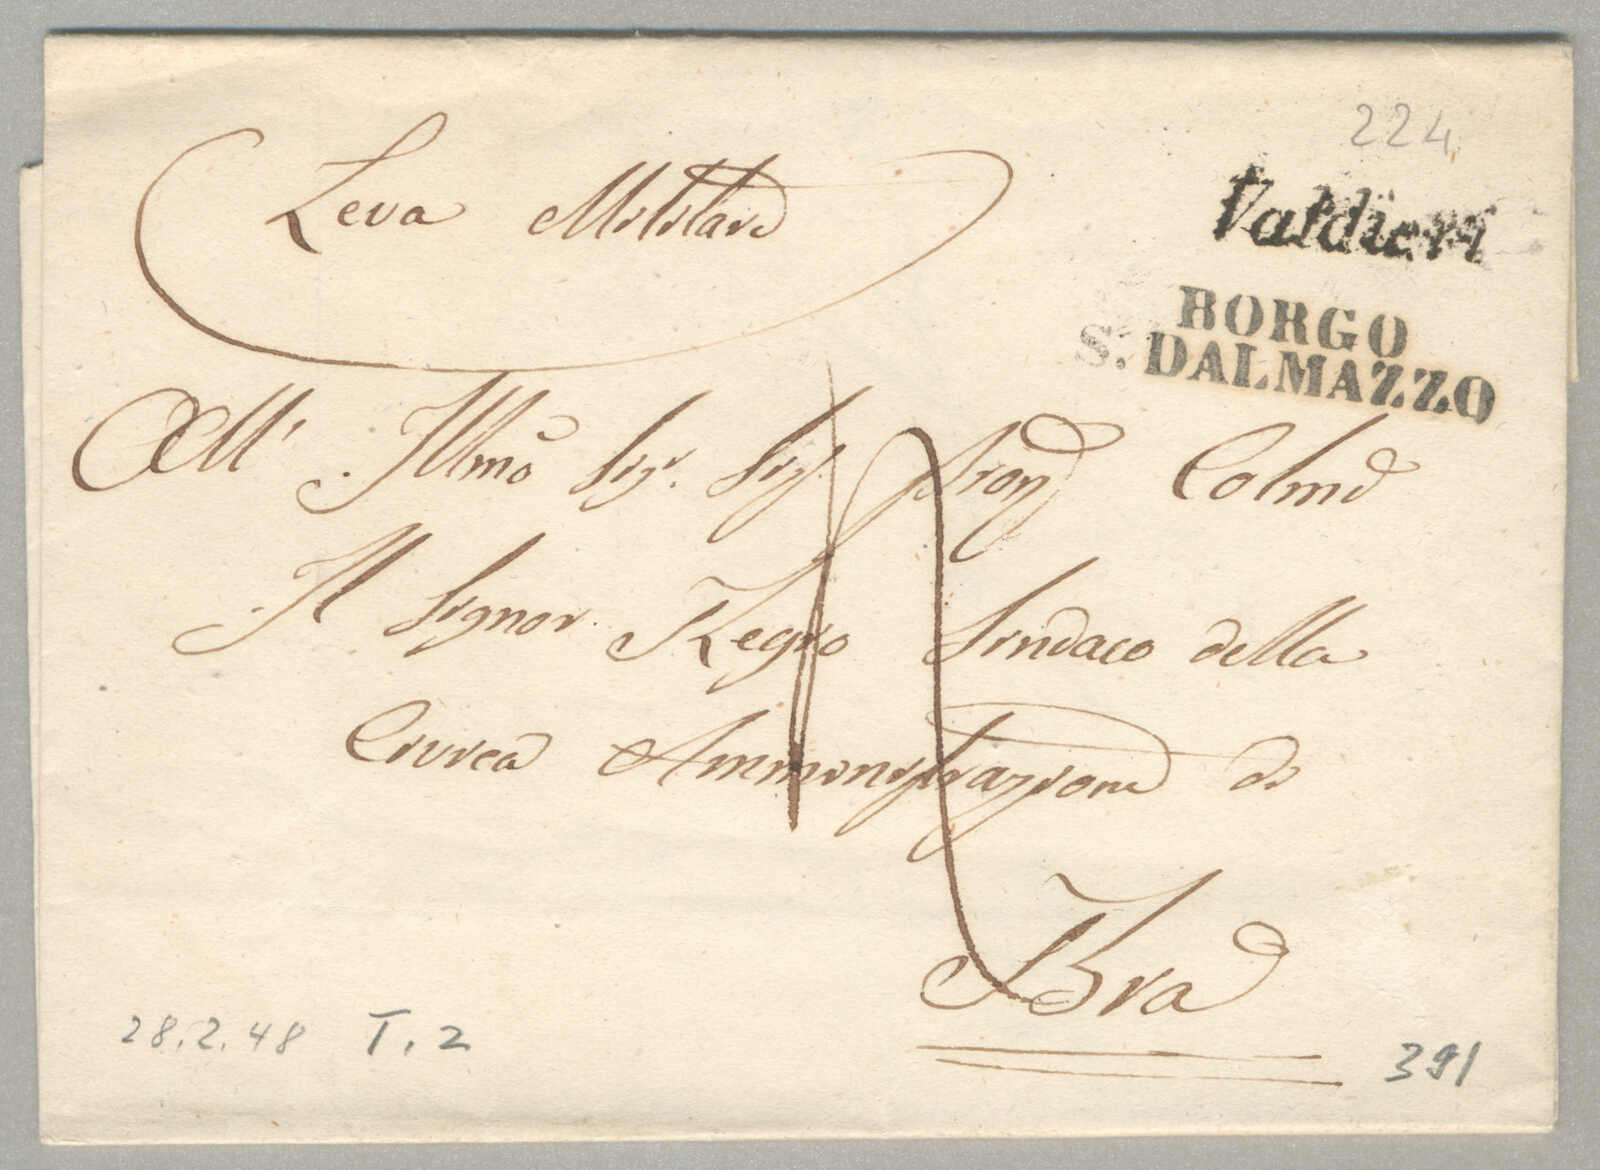 224
Leva Militare
Valdieri
BORGO
S. DALMAZZO
All' Illmo Sigr. Sig. Pron Colmo
Il Signor Negro Sindaco della
Civica Amministrazione di
Bra
28.2.48 T.2
391